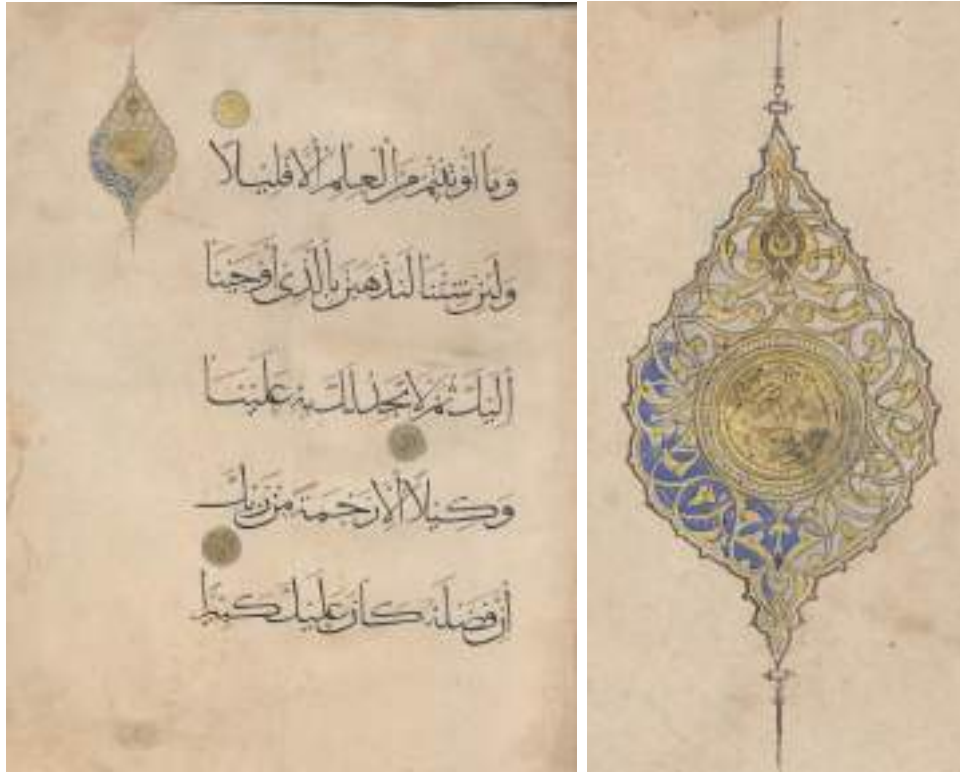 وما اوتيتم من العلم الا قليلا
ولئن شئنا لنذهبن بالذي اوحينا
اليك ثم لا تجد لك به علينا
وكيلا الا رحمة من ربك
ان فضله كان عليك كبيرا